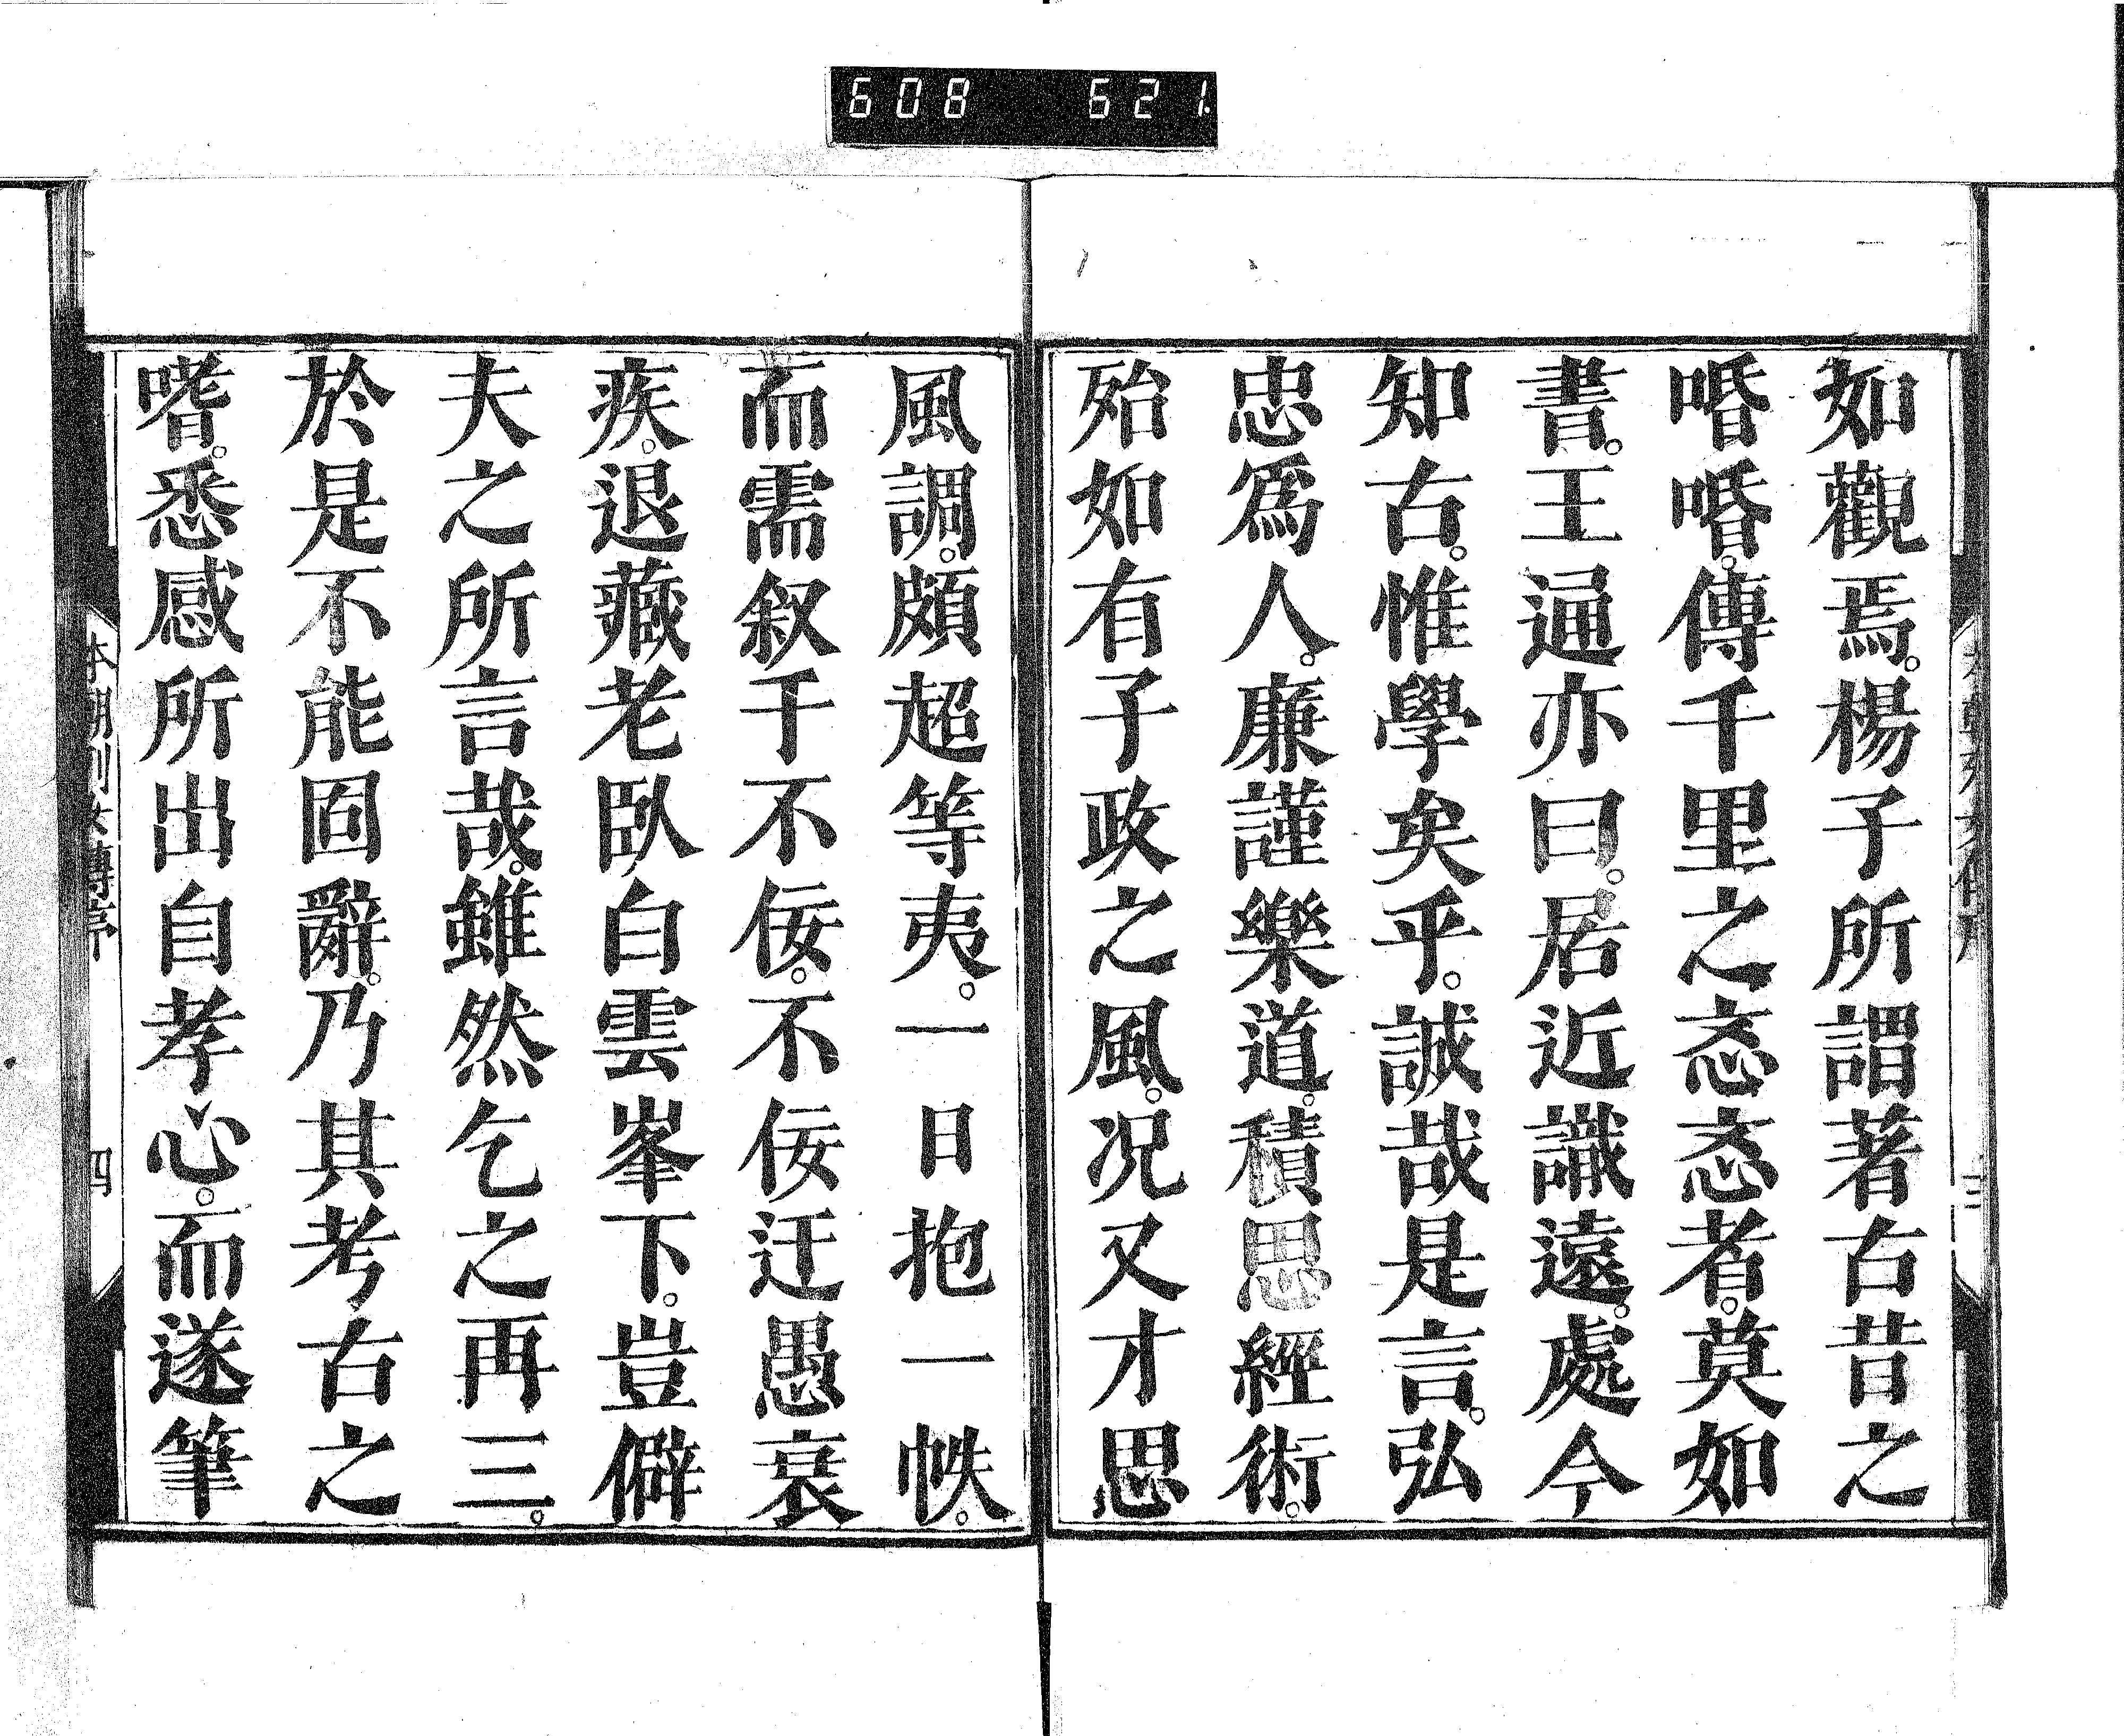 608 621.
如觀焉。楊子所謂著古昔之
㖧㖧。傳千里之忞忞者。莫如
書。王逼亦曰。居近識遠。處今
知古。惟學矣乎。誠哉是言。弘
忠爲人。廉謹樂道。積思經術。
殆如有子政之風。況又才思
三
風調。頗超等夷。一日抱一帙。
而需叙于不佞。不佞迂愚衰
疾。退藏老臥白雲峯下。豈僻
夫之所言哉。雖然乞之再三。
於是不能固辭。乃其考古之
嗜。悉感所出自孝心。而遂筆
本朝列女傳序
四